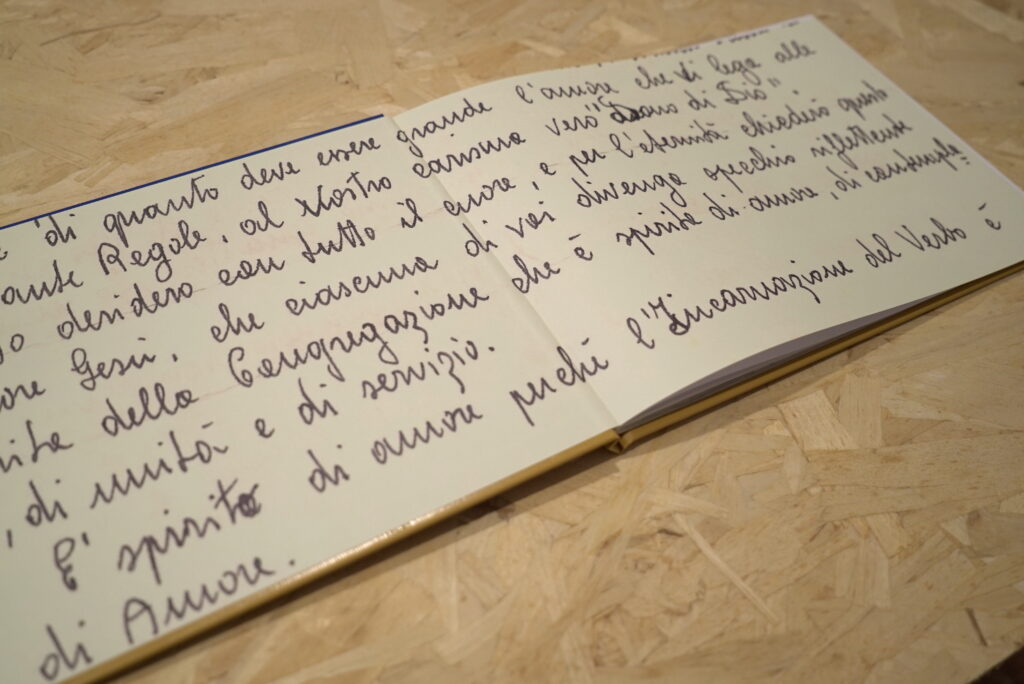 di quanto deve essere grande l'amore che vi lega alle
ante Regole, al Nostro carisma vero "Dono di Dio".
o desidero con tutto il cuore, e per l'eternità chiederò questo
ore Gesù, che ciascuna di voi divenga specchio riflettente
della Congregazione che è spirito di amore, di contempla-
, di unità e di servizio.
E' spirito di amore perché l'Incarnazione del Verbo è
di Amore.